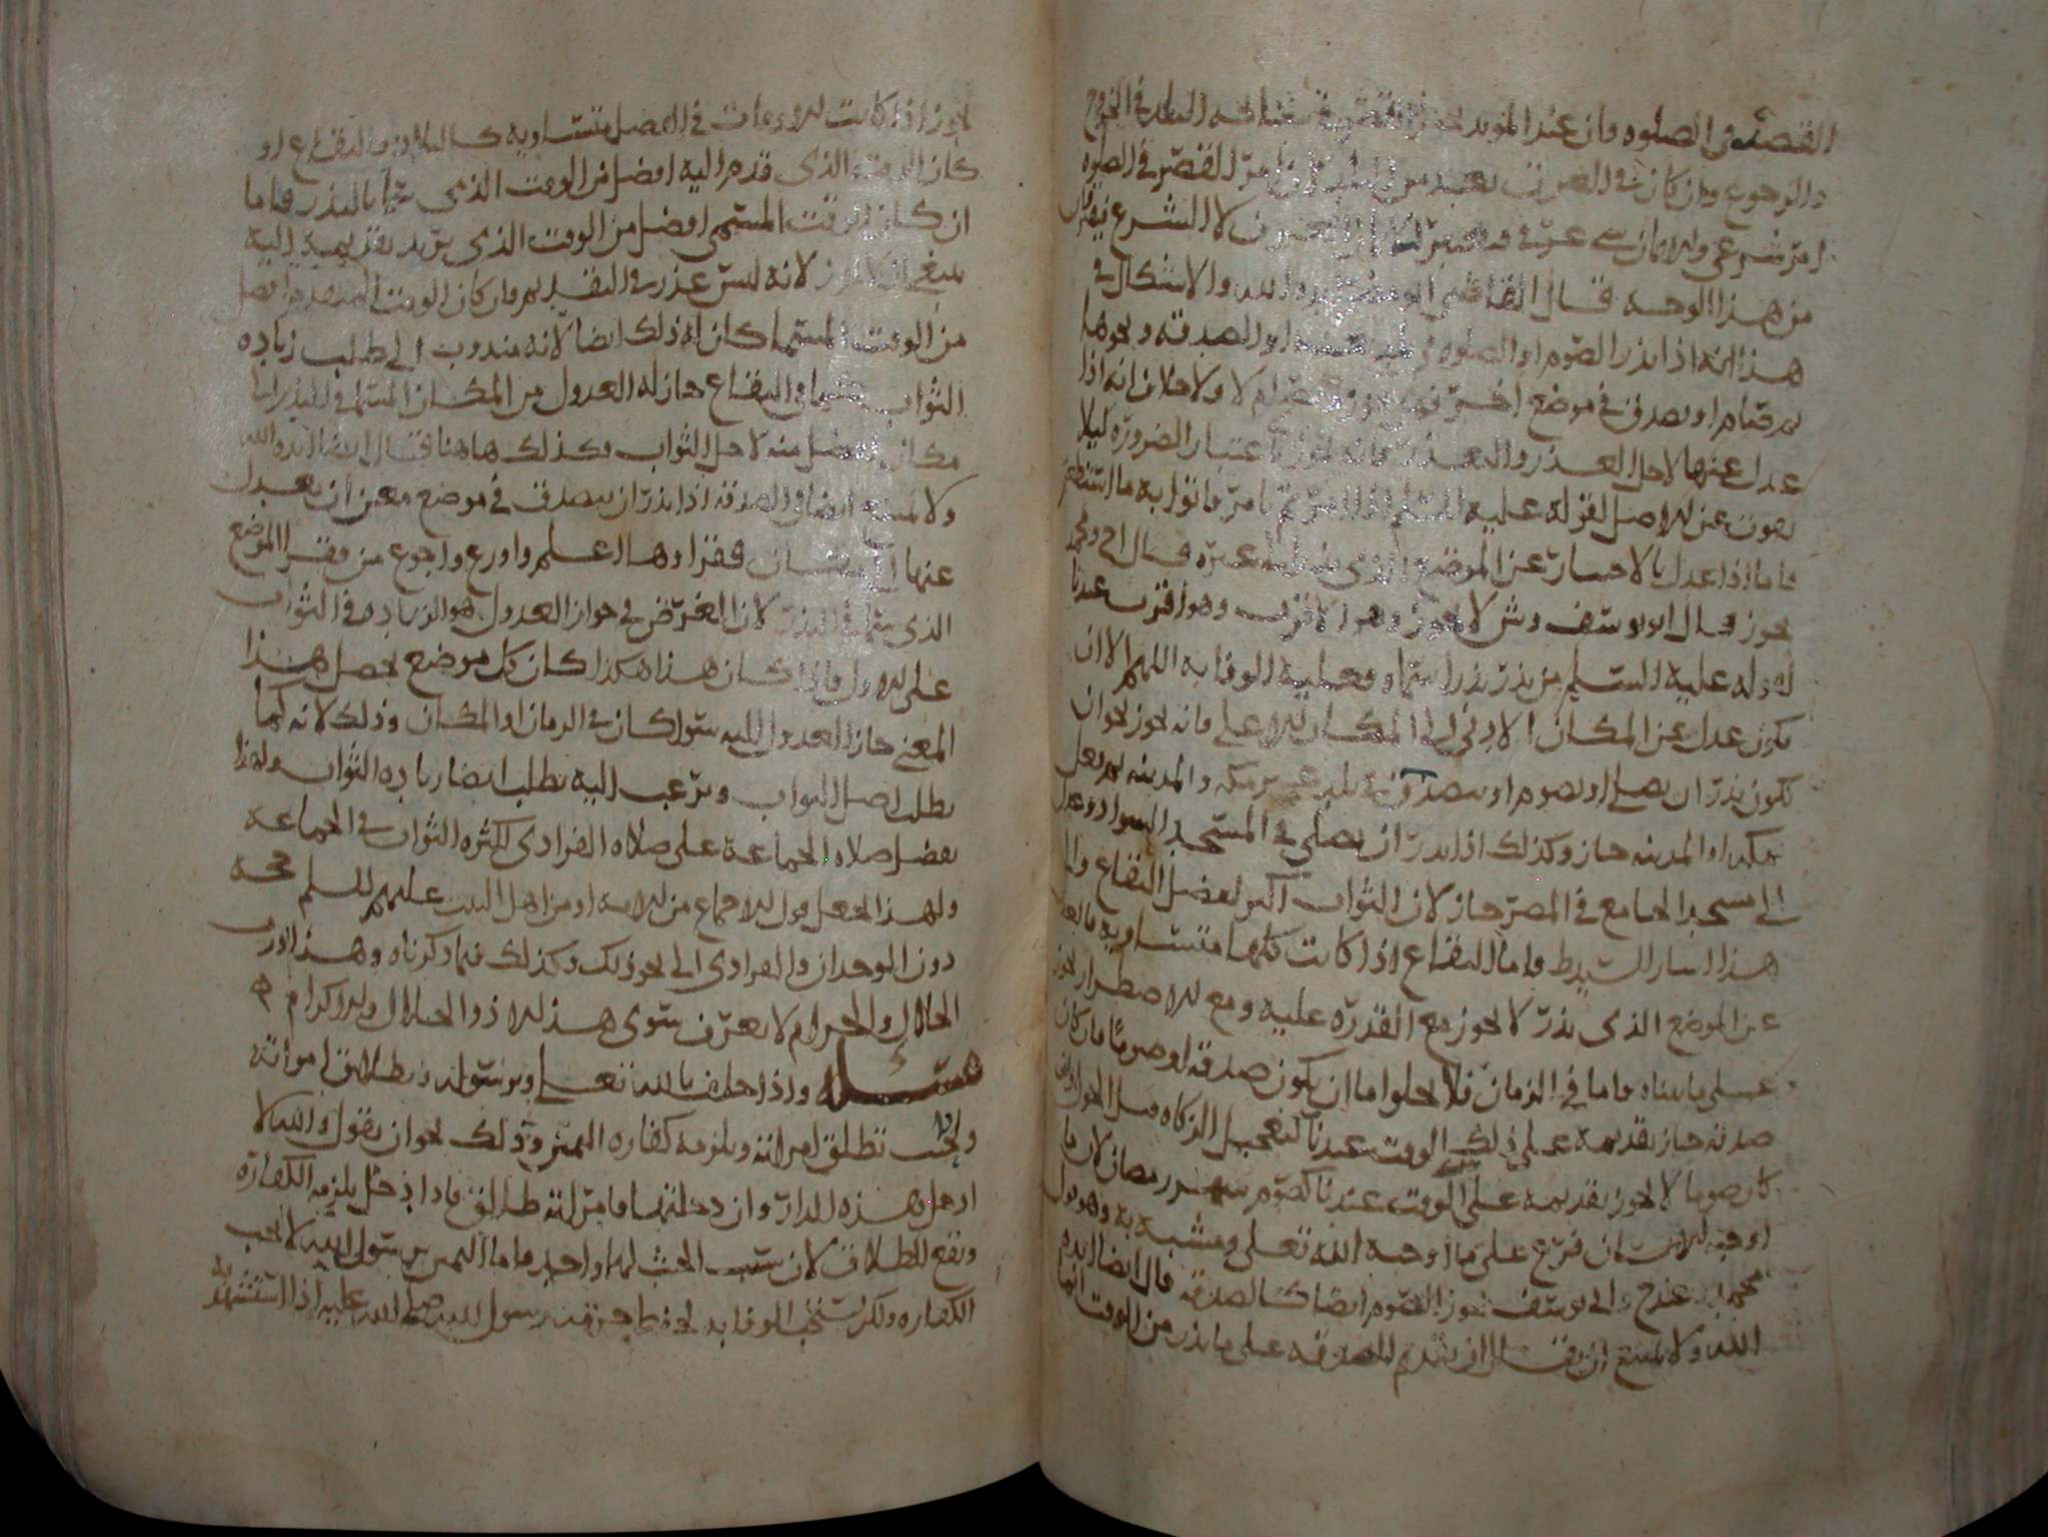 القصر في الصلوه وان عند المويد يجوز القصر في الخروج
والرجوع وان كان في العرف القصر في الصلوه
امر شرعي والايمان لا الشرع
من هذا الوجه قال القاضي ايده الله والاشكال في
هذا انه اذا نذر الصوم او الصلوه في او الصدقه ونحوها
ثم صام او تصدق في موضع اخر ام لا ولا خلاف انه اذا
عدل عنها لاجل العذر والتعذر فانه يجوز باعتبار الضروره ليلا
يفوت عن الاصل لقوله عليه السلم اذا امرتم بامر فاتوا به ما استطعتم
فاما اذا عدل بالاختيار عن الموضع الذي الى غيره قال ح ومحمد
يجوز وقال ابو يوسف وش لا يجوز وهو وهو اقرب عندنا
لقوله عليه السلم من نذر نذرا سماه فعليه الوفا به اللهم الا ان
يكون عدل عن المكان الادنى الى المكان الاعلى فانه يجوز نحو ان
يكون نذر ان يصلي او يصوم او يتصدق في بلد غير مكه والمدينه ثم فعل
بمكه او المدينه جاز وكذلك اذا نذر ان يصلي في المسجد السواد وعدل
الى مسجد الجامع في المصر جاز لان الثواب اكبر لفضل البقاع
هذا واما البقاع اذا كانت كلها متساويه فالعدول
عن الموضع الذي نذر لا يجوز مع القدره عليه ومع الاضطرار يجوز
على ما بيناه واما في الزمان فلا يخلوا اما ان يكون صدقه او صوما فان كان
صدقه جاز تقديمه على ذلك الوقت عندنا كتعجيل الزكاه قبل الحول وان
كان صوما لا يجوز تقديمه على الوقت عندنا كصوم شهر رمضان لان ما
اوجبه الانسان فرع على ما اوجبه الله تعلى ومشبه به وهو قول
محمد وعند ح وابي يوسف يجوز الصوم ايضا كالصدقه قال ايضا ايده
الله ولا يمتنع ان يقال ان تقديم الصدقه على ما نذر من الوقت انما
يجوز اذا كانت الاوقات في الفضل متساويه كالبلاد والبقاع او
كان الوقت الذي قدم اليه افضل من الوقت الذي سماه بالنذر فاما
ان كان الوقت المسمى افضل من الوقت الذي يريد تقديمه اليه
ينبغي ان لا يجوز لانه ليس عذر في التقديم وان كان الوقت المتقدم افضل
من الوقت المسما كان له ذلك ايضا لانه مندوب الى طلب زياده
الثواب كما في البقاع جاز له العدول من المكان المسما في النذر الى
مكان افضل منه لاجل الثواب وكذلك هاهنا قال ايضا ايده الله
ولا يمتنع ايضا في الصدقه اذا نذر ان يتصدق في موضع معين ان يعدل
عنها الى فقراوها اعلم واورع واجوع من فقرا الموضع
الذي سماه في النذر لان الغرض في جواز العدول هو الزياده في الثواب
على الاول واذا كان هذا هكذا كان كل موضع يحصل هذا
المعنى جاز العدول اليه سوا كان في الزمان او المكان وذلك لانه كما
يطلب اصل الثواب ويرغب اليه يطلب ايضا زياده الثواب ولهذا
يفضل صلاه الجماعه على صلاه الفرادى لكثره الثواب في الجماعه
ولهذا يجعل قول الاجماع من الامه او من اهل البيت عليهم السلم حجه
دون الوحدان والفرادى الى نحو ذلك وكذلك فيما ذكرناه وهذا
الحلال والحرام لا يعرف سوى هذا الا ذو الجلال والاكرام ه
مسئله واذا حلف بالله تعلى وبرسوله وبطلاق امراته
وحنث تطلق امراته ويلزمه كفاره اليمين وذلك نحو ان يقول والله لا
ادخل هذه الدار وان دخلتها فامراته طالق فاذا دخل يلزمه الكفاره
ويقع الطلاق لان سبب الحنث لهما واحد فاما اليمين برسول الله لا يجب
الكفاره ولكن يستحب الوفا به لحفظ حرمة رسول الله صلى الله عليه اذا استشهد به